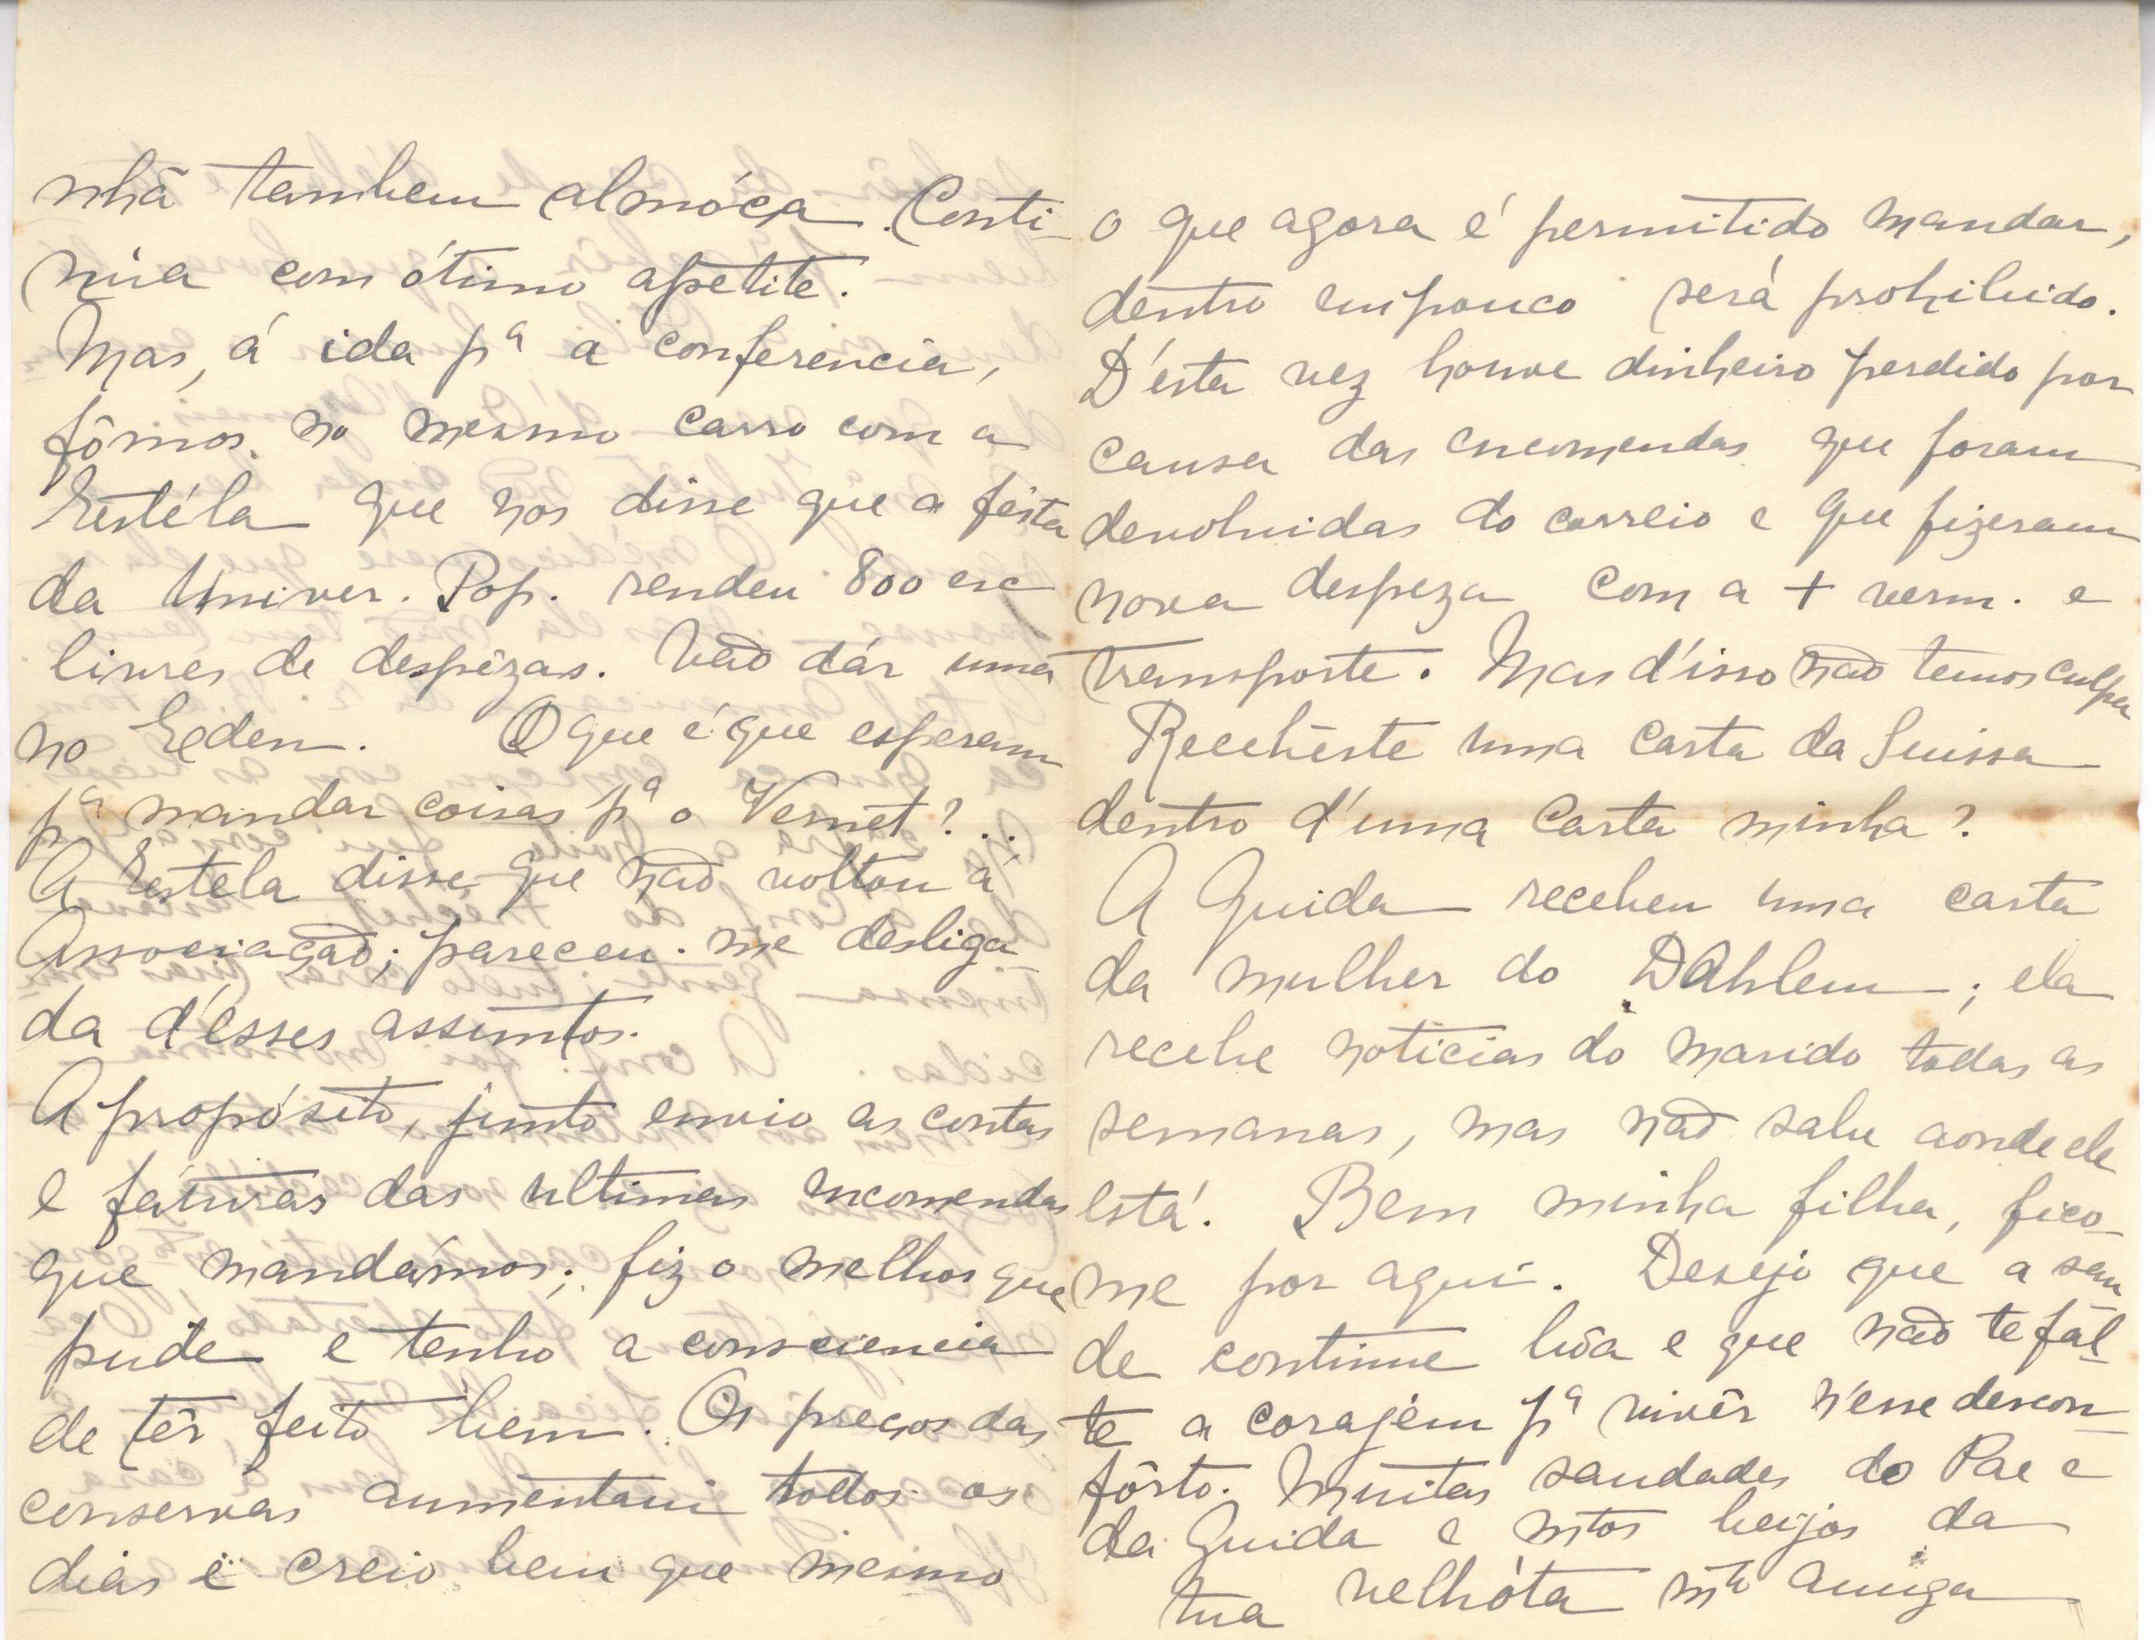 nhã tambem almóça. Conti-
núa com ótimo apetite.
Mas, á ida pª a conferencia,
fômos no mesmo carro com a
Estéla que nos disse que a fésta
da Univer. Pop. rendeu 800 esc
livres de despêzas. Vão dár uma
no Eden. O que é que esperam
pª mandar coisas pª o Vernet?...
A Estela disse que não voltou á
Associação; pareceu-me desliga-
da d'ésses assuntos.
A propósito, junto envio as contas
e faturas das ultimas encomendas
que mandámos; fiz o melhor que
pude e tenho a consciencia
de têr feito bem. Os preços das
conservas aumentam todos os
dias e creio bem que mesmo
o que agora é permitido mandar,
dentro empouco será prohibido.
D'ésta vez houve dinheiro perdido por
causa das encomendas que foram
devolvidas do correio e que fizeram
nova despeza com a + verm. e
transporte. Mas d'isso não temos culpa
Recebêste uma carta da Suissa
dentro d'uma carta minha?
A Guida recebeu uma carta
da mulher do Dahlem; ela
recebe noticias do marido todas as
semanas, mas não sabe aonde ele
está! Bem minha filha, fico-
me por aqui. Desejo que a sau
de continue bôa e que não te fál-
te a coragem pª vivêr n'esse descon-
fôrto. Muitas saudades do Pae e
da Guida e mtos beijos da
tua velhóta mto amiga